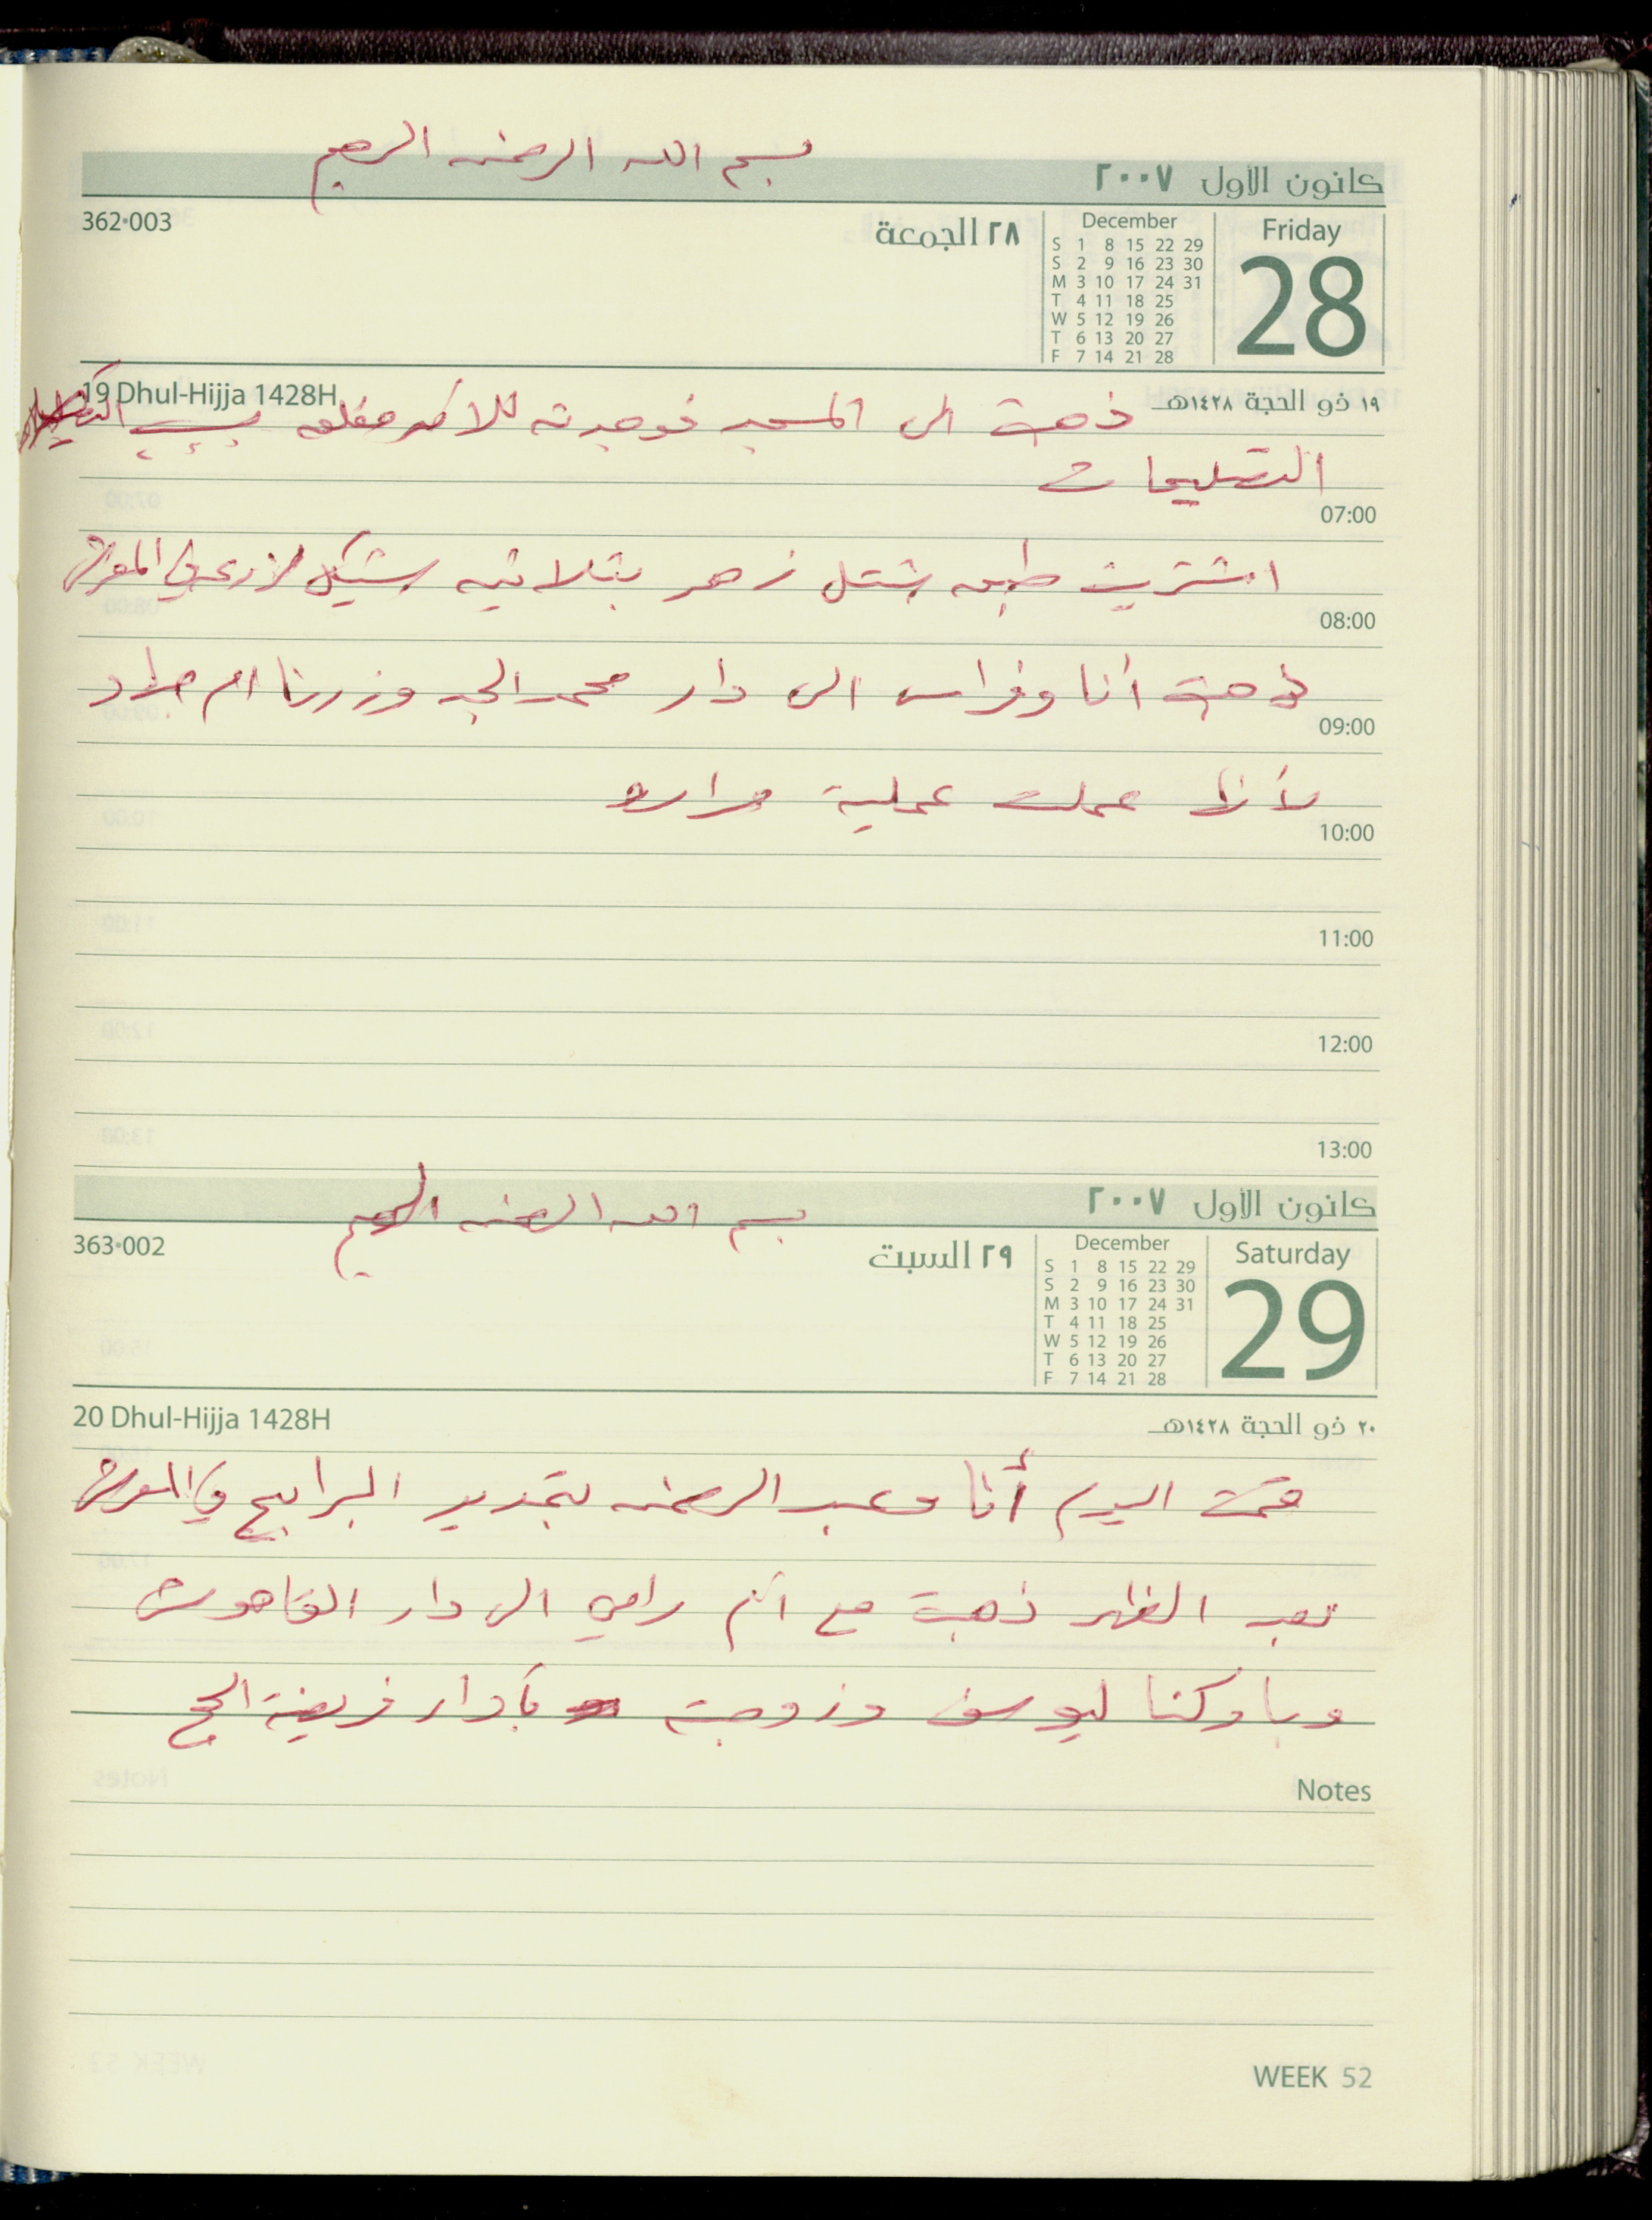 بسم الله الرحمن الرحيم
كانون الأول ٢٠٠٧
362-003
٢٨ الجمعة
December
S 1 8 15 22 29
S 2 9 16 23 30
M 3 10 17 24 31
T 4 11 18 25
W 5 12 19 26
T 6 13 20 27
F 7 14 21 28
Friday
28
19 Dhul-Hijja 1428H
١٩ ذو الحجة ١٤٢٨هـ
ذهبت الى المسجد فوجدته للأسف مغلق بسبب
التصليحات
07:00
اشتريت طبعه شتل زهر بثلاثين شيكل لأزرعه في المعرش
08:00
ذهبت أنا وفراس الى دار محمد الجد وزرنا ام مراد
09:00
لأنها عملت عملية مراره
10:00
11:00
12:00
13:00
بسم الله الرحمن الرحيم
كانون الأول ٢٠٠٧
363-002
٢٩ السبت
December
S 1 8 15 22 29
S 2 9 16 23 30
M 3 10 17 24 31
T 4 11 18 25
W 5 12 19 26
T 6 13 20 27
F 7 14 21 28
Saturday
29
20 Dhul-Hijja 1428H
٢٠ ذو الحجة ١٤٢٨هـ
قمت اليوم أنا وعبد الرحمن بتمديد البرابيج في المعرش
بعد الظهر ذهبت مع ام رامي الى دار
وباركنا ليوسف وزوجته بأداء فريضة الحج
Notes
WEEK 52